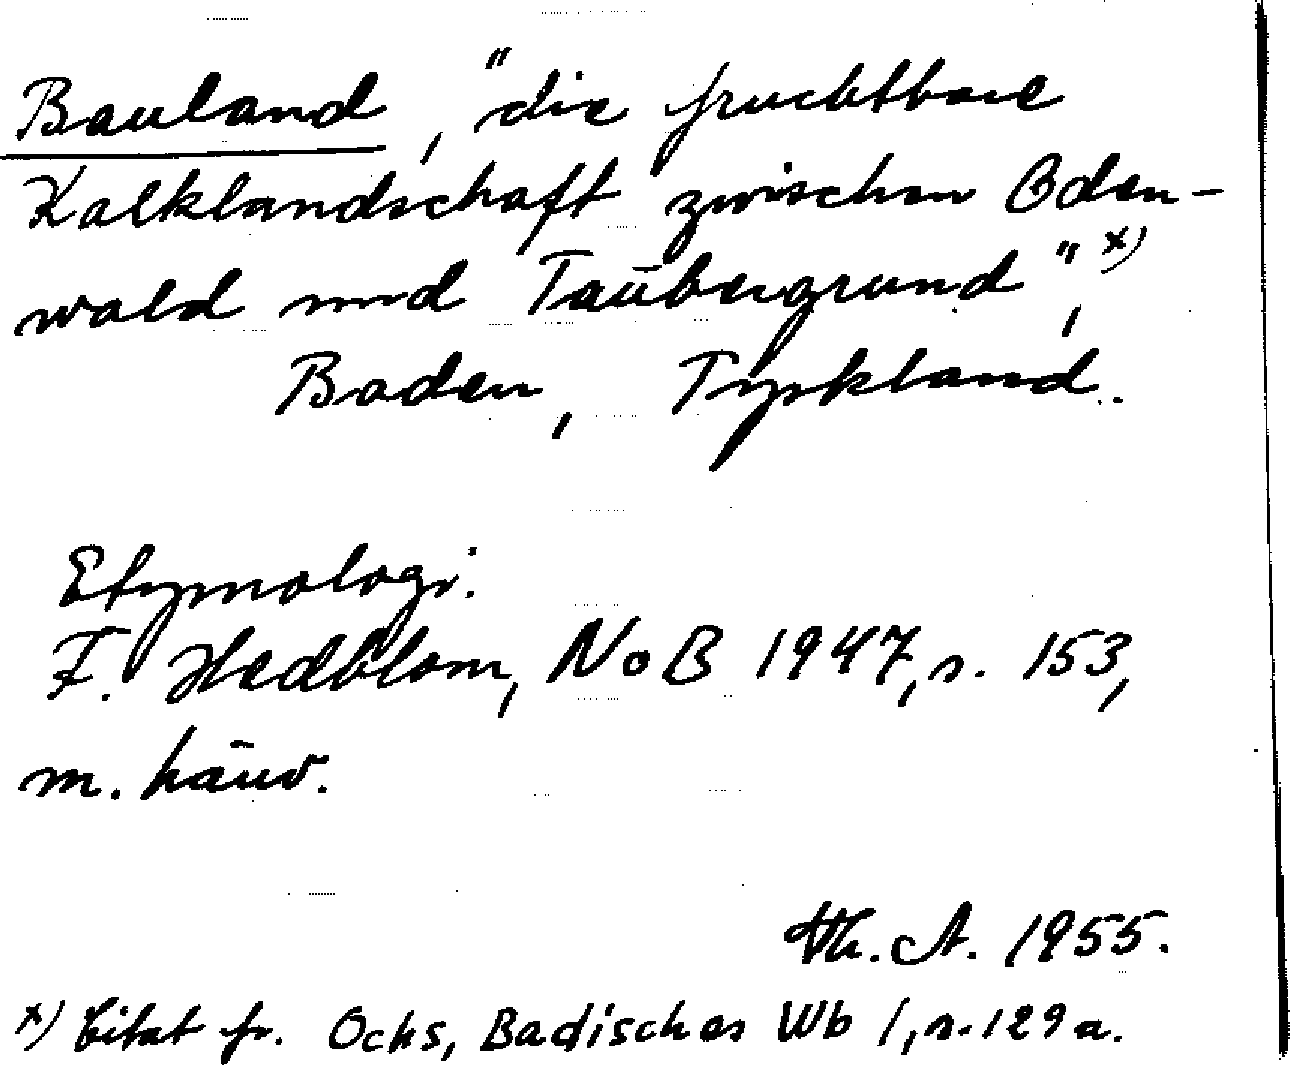 Bauland, "die fruchtbare
Kalklandschaft zwischen Oden-
wald und Taubergrund",x)
Baden, Tyskland.
Etymologi.
F. Hedblom, NoB 1947, s. 153,
m. hänv.
Th. A. 1955.
x) Citat fr. Ochs, Badisches Wb 1, s. 129 a.